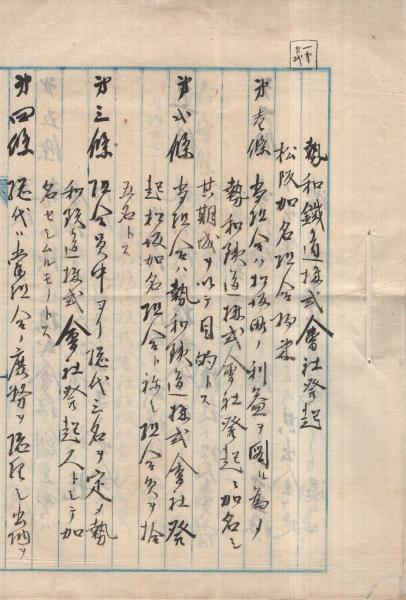 勢和鐵道株式會社發起
松阪加名組合規約
第壱條 当組合ハ松阪町ノ利益ヲ図ル為メ
勢和鉄道株式會社発起ニ加名シ
其期成ヲ以テ目的トス
第弐條 当組合ハ勢和鉄道株式會社発
起松阪加名組合ト称シ組合員ヲ拾
五名トス
第三條 組合員中ヨリ総代三名ヲ定メ勢
和鉄道株式會社発起人トシテ加
名セシムルモノトス
第四條 総代ハ当組合ノ庶務ヲ総理シ出納ヲ